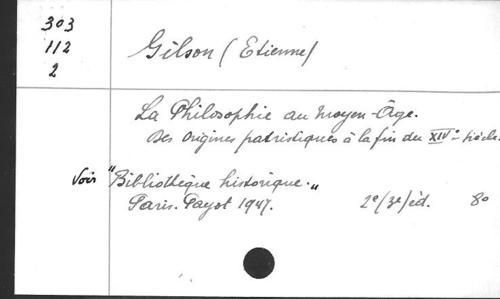 303
112
2
Gilson (Etienne)
La Philosophie au Moyen-Âge.
Des Origines patristiques à la fin du XIVe siècle.
Voir "Bibliothèque historique."
Paris. Payot 1947. 2e (3e) éd. 80